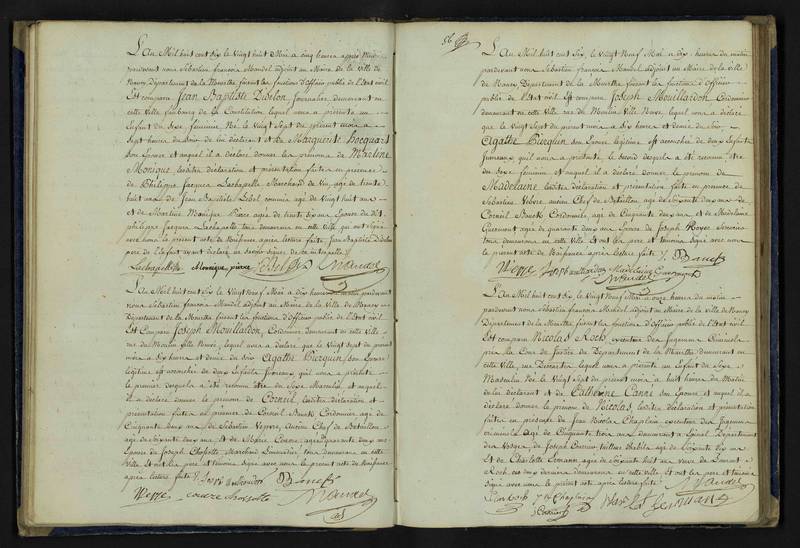 L'An Mil huit cent Six le Vingt huit Mai à cinq heures après Midi
pardevant nous Sébastien françois Mandel adjoint au Maire de la Ville de
Nancy Département de la Meurthe faisant les fonctions d'Officier public de l'état civil
Est comparu Jean Baptiste Didelon, journalier, demeurant en
cette Ville faubourg de la Constitution lequel nous a présenté un
Enfant du Sexe féminin Né le Vingt Sept du présent mois à
Sept heures du Soir de lui déclarant et de Marguerite Hocquart
Son Epouse et auquel il a déclaré donner les prénoms de Marlene
Monique, lesdites déclaration et présentation faites en présence
de Philippe Jacques Lachapelle Marchand de Vin, agé de trente
huit ans de Jean Baptiste Lebel commis agé de Vingt huit ans
et de Martine Monique Pierre agée de trente six ans Epouse du dit
philippe Jacques Lachapelle, tous demeurant en cette Ville, qui ont signé
avec nous le présent acte de Naissance après lecture faite Jean Baptiste Didelon
père de l'Enfant ayant déclaré ne savoir signer de ce interpellé
Lachapelle Monique pierre Lebel Mandel
L'An Mil huit cent Six le Vingt Neuf Mai à dix heures du matin pardevant
nous Sébastien françois Mandel adjoint au Maire de la Ville de Nancy
Département de la Meurthe faisant les fonctions d'Officier public de l'état civil
Est Comparu Joseph Mouillardon, Cordonnier, demeurant en cette Ville
rue du Moulin Ville Neuve, lequel nous a déclaré que le Vingt Sept du présent
mois à Six heures et demie du Soir Agathe Pierquin, Son Epouse
légitime est accouchée de deux Enfants Jumeaux qu'il nous a présenté
le premier desquels a été reconnu être du Sexe Masculin et auquel
il a déclaré donner le prénom de Corneil lesdites déclaration et
présentation faites en présence de Corneil Banet Cordonnier agé de
Cinquante deux ans de Sébastien Ancien Chef de Bataillon
agé de Soixante dix ans, et de Marie agée quarante deux ans
Epouse de Joseph Chossotte Marchand Limonadier tous demeurant en cette
Ville Et ont les père et témoins Signé avec nous le présent acte de Naissance
après lecture faite Joseph Mouillardon Banet
Chossotte Mandel
56
L'An Mil huit cent Six, le Vingt Neuf Mai à dix heures du matin
pardevant nous Sébastien françois Mandel adjoint au Maire de la Ville
de Nancy, Département de la Meurthe faisant les fonctions d'Officier
public de l'état civil Est comparu Joseph Mouillardon Cordonnier
demeurant en cette Ville rue du Moulin Ville Neuve, lequel nous a déclaré
que le Vingt Sept du présent mois à Six heures et demie du Soir
Agathe Pierquin Son Epouse légitime est accouchée de deux Enfants
Jumeaux qu'il nous a présenté, le Second desquels a été reconnu être
du Sexe féminin et auquel il a déclaré donner le prénom de
Madelaine lesdites déclaration et présentation faites en présence de
Sébastien ancien Chef de Bataillon, agé de Soixante dix ans de
Corneil Banet Cordonnier, agé de Cinquante deux ans, et de Madelaine
agée de quarante deux ans Epouse de Joseph Royer
tous demeurant en cette Ville Et ont les père et témoins Signé avec nous
le présent acte de Naissance après lecture faite Banet
Joseph Mouillardon Madelaine
Mandel
L'An Mil huit cent Six, le Vingt Neuf Mai à onze heures du matin
pardevant nous Sébastien françois Mandel adjoint au Maire de la Ville de Nancy
Département de la Meurthe faisant les fonctions d'Officier public de l'état civil
Est comparu Nicolas Roch, exécuteur des Jugemens Criminels
près la Cour de Justice du Département de la Meurthe demeurant en
cette Ville, rue lequel nous a présenté un Enfant du Sexe
Masculin Né le Vingt Sept du présent mois à huit heures du Matin
de lui déclarant et de Catherine Canné Son Epouse et auquel il a
déclaré donner le prénom de Nicolas, lesdites déclaration et présentation
faites en présence de Jean Nicolas Chaplain exécuteur des Jugemens
criminels agé de Cinquante trois ans demeurant à Epinal Département
des Vosges, de Joseph agé de Soixante dix ans
et de Charlotte agée de Soixante huit ans veuve de
Roch, ces deux derniers demeurant en cette Ville, Et ont les père et témoins
Signé avec nous le présent acte après lecture faite Mandel
Roch J N Chaplain